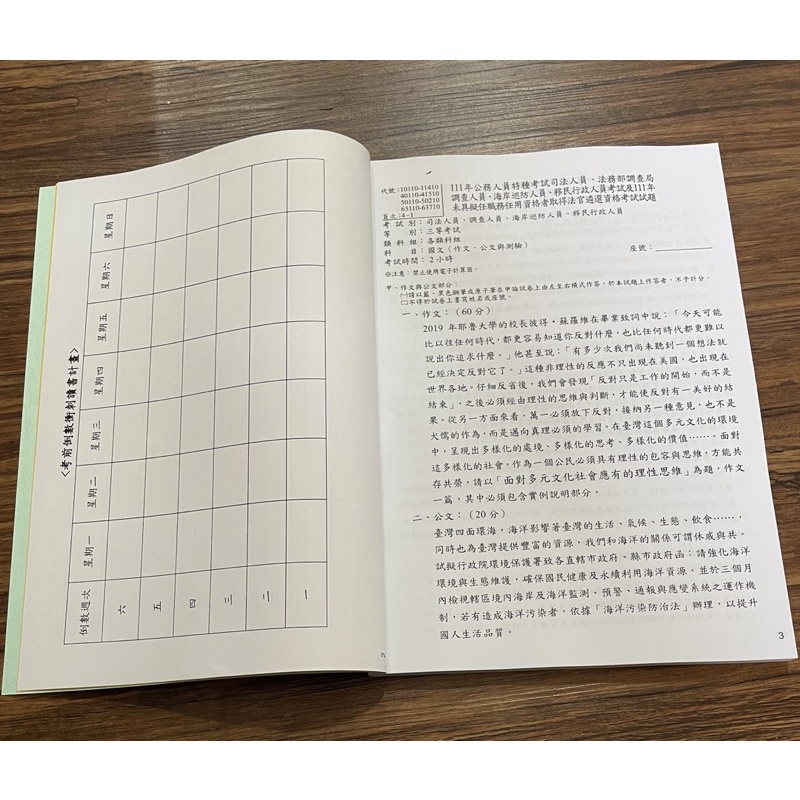 <考前倒數衝刺讀書計畫>
倒數週次 星期一 星期二 星期三 星期四 星期五 星期六 星期日
六
五
四
三
二
一
2
代號：10110-11410
40110-41510
50110-50210
63110-63710
頁次：4-1
111年公務人員特種考試司法人員、法務部調查局
調查人員、海岸巡防人員、移民行政人員考試及111年
未具擬任職務任用資格者取得法官遴選資格考試試題
考試別：司法人員、調查人員、海岸巡防人員、移民行政人員
等別：三等考試
類科組：各類科組
科目：國文（作文、公文與測驗）
考試時間：2小時
座號：
※注意：禁止使用電子計算器。
甲、作文與公文部分：
㈠請以藍、黑色鋼筆或原子筆在申論試卷上由左至右橫式作答，於本試題上作答者，不予計分。
㈡不得於試卷上書寫姓名或座號。
一、作文：（60分）
2019 年耶魯大學的校長彼得・蘇羅維在畢業致詞中說：「今天可能
比以往任何時代，都更容易知道你反對什麼，也比任何時代都更難以
說出你追求什麼。」他甚至說：「有多少次我們尚未聽到一個想法就
已經決定反對它了。」這種非理性的反應不只出現在美國，也出現在
世界各地。仔細反省後，我們會發現「反對只是工作的開始，而不是
結束」，之後必須經由理性的思維與判斷，才能使反對有一美好的結
果。從另一方面來看，萬一必須放下反對，接納另一種意見，也不是
犬儒的作為，而是邁向真理必須的學習。在臺灣這個多元文化的環境
中，呈現出多樣化的處境、多樣化的思考、多樣化的價值……。面對
這多樣化的社會，作為一個公民必須具有理性的包容與思維，方能共
存共榮，請以「面對多元文化社會應有的理性思維」為題，作文
一篇，其中必須包含實例說明部分。
二、公文：（20分）
臺灣四面環海，海洋影響著臺灣的生活、氣候、生態、飲食……，
同時也為臺灣提供豐富的資源，我們和海洋的關係可謂休戚與共。
試擬行政院環境保護署致各直轄市政府、縣市政府函：請強化海洋
環境與生態維護，確保國民健康及永續利用海洋資源，並於三個月
內檢視轄區境內海岸及海洋監測、預警、通報與應變系統之運作機
制，若有造成海洋污染者，依據「海洋污染防治法」辦理，以提升
國人生活品質。
3